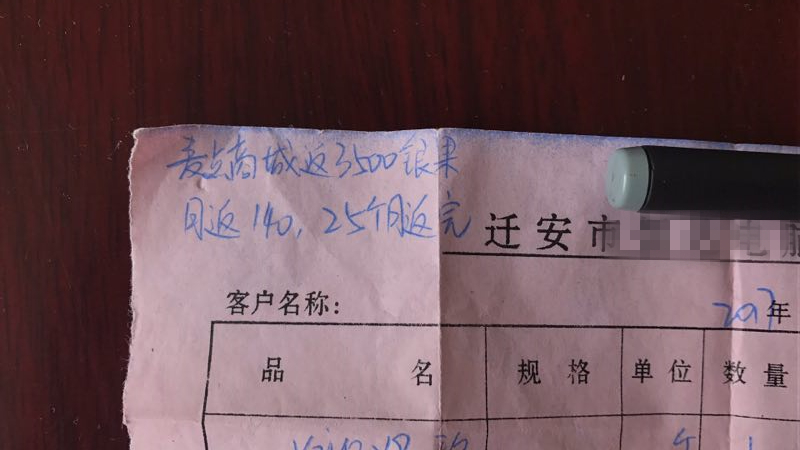 麦点商城返3500银果
月返140,25个月返完
迁安市
客户名称:
2017年
品名 规格 单位 数量
个 1